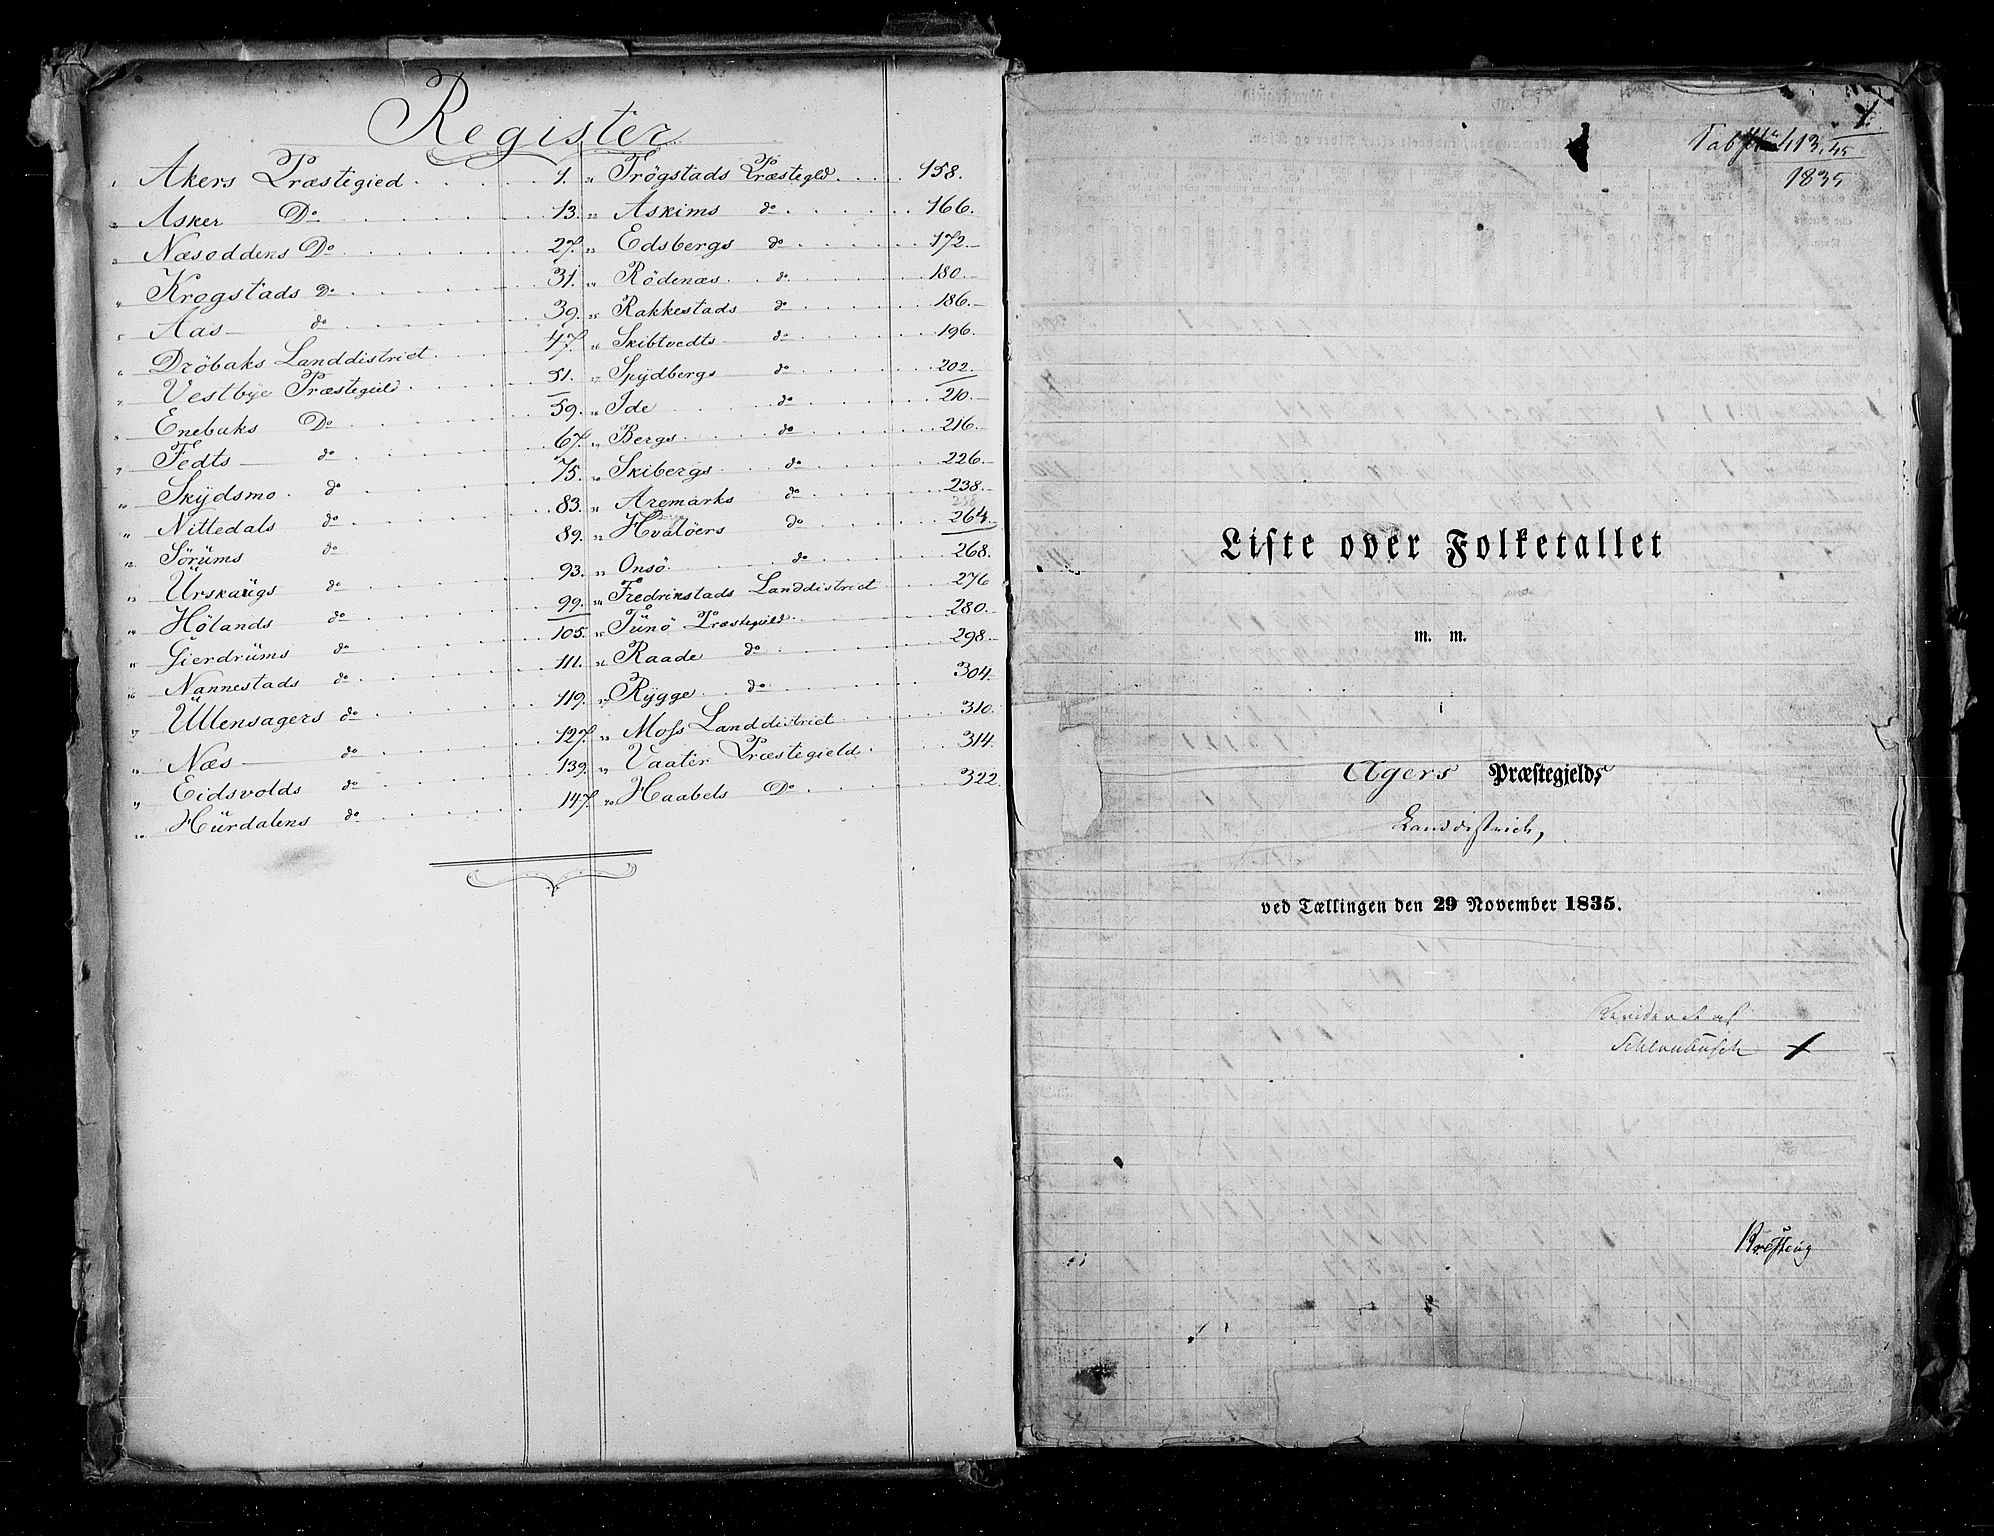 Register
1 Akers Præstegied 1.
2 Asker Do 13.
3 Næsoddens Do 27.
4 Krogstads Do 31.
5 Aas do 39.
6 Dröbaks Landdistrict 47.
7 Vestbye Præstegield 51.
8 Enebaks Do 59.
9 Fedts do 67.
10 Skÿdsmo do 75.
11 Nittedals do 83.
12 Sörüms do 89.
13 Ürskaugs do 93.
14 Hölands do 99.
15 Gierdrüms do 105.
16 Nannestads do 111.
17 Üllensagers do 119.
18 Næs do 127.
19 Eidsvolds do 139.
20 Hürdalens do 147.
21 Trögstads Præstegld 158.
22 Askims do 166.
23 Edsbergs do 172.
24 Rödenæs do 180.
25 Rakkestads do 186.
26 Skibtvedts do 196.
27 Spÿdbergs do 202.
28 Ide do 210.
29 Bergs do 216.
30 Skibergs do 226.
31 Aremarks do 238.
32 Hvalöers do 264.
33 Onsö do 268.
34 Fredrikstads Landdistrict 276
35 Tünö Præstegield 280.
36 Raade do 298.
37 Rÿgge do 304.
38 Moss Landdistrict 310.
39 Vaaler Præstegield 314.
40 Haabels Do 322.
1.
1835
Liste over Folketallet
m. m.
i
Agers Præstegjelds
Landdistrict,
ved Tællingen den 29 November 1835.
Revideret af